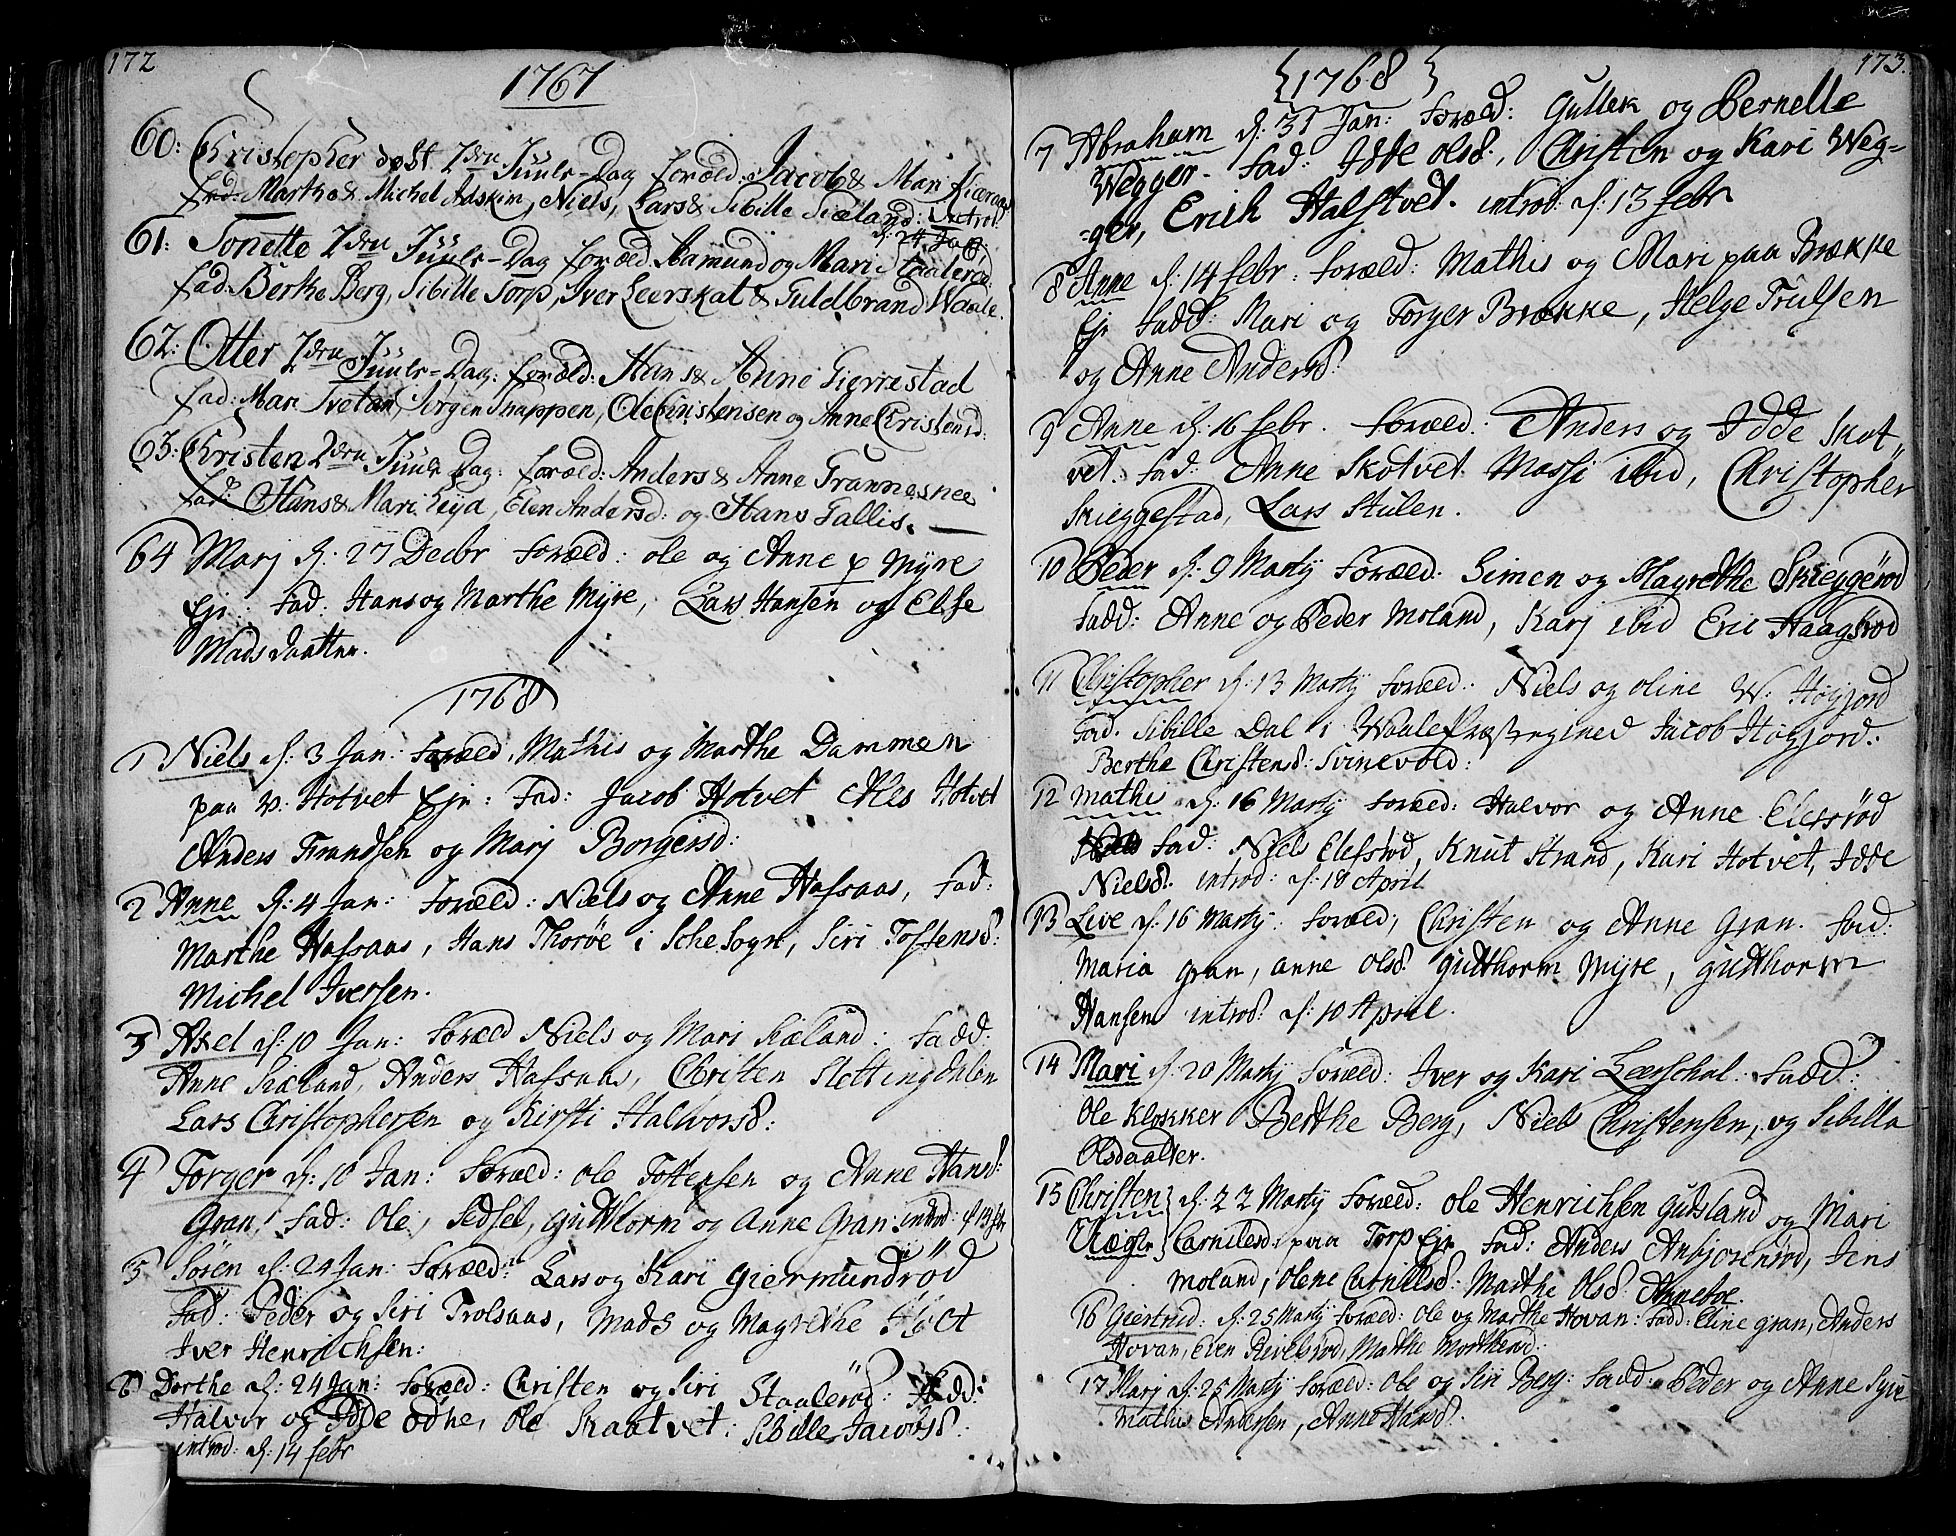 172
1767
60: Christopher døbt 2den Juuls-Dag foræld: Jacob & Mari
fad: Marthe & Michel Askim, Niels, Lars & Sibille Siæland: introd:
d. 24 Jan:
61: Tonette 2den Juuls-Dag foræld: Aamund og Mari Staalerød:
fad: Berthe Berg, Sibille Torp, Iver Leerskal & Guldbrand Waale.
62: Otter 2den Juuls-Dag: foræld: Hans & Anne Gierrestad
fad: Mari Tvetan, Jørgen Knappen, Ole Christensen og Anne Christensd:
63: Christen 2den Juuls Dag: foræld: Anders & Anne Grannesnee
fad: Hans & Mari Eiya, Elen Andersd: og Hans Gallis.
64 Marj d: 27 Decbr Foræld: ole og Anne p Myre
Eje: Fad: Hans og Marthe Myre, Lars Hansen og Else
Mads daatter.
1768
1 Niels d: 3 Jan: Foræld. Mathis og Marthe Dammen
paa W: Hotvet Eje: Fad: Jacob Hotvet Alles Hotvet
Anders Frandsen og Marj Borgersd:
2 Anne d: 4 Jan: Foræld: Niels og Anne Hafsaas, Fad:
Marthe Hafsaas, Hans Thorøe i Sche Sogn, Siri Tostensd:
Michel Iversen.
3 Axel d: 10 Jan: Foræld Niels og Mari Siæland: Fadd:
Anne Siæland, Anders Hafsaas, Christen Slettingdalen
Lars Christophersen og Kirsti Halvorsd:
4 Torger d: 10 Jan: Foræld: ole Tostensen og Anne Hansd:
Gran, Fad: Ole, Sedsel, Gutthorm og Anne Gran: introd: d 14 febr
5 Søren d: 24 Jan: Foræld: Lars og Kari Giermundrød
Fad: Peder og Siri Trolsaas, Mads og Magrethe Holt
Iver Henrichsen:
6 Dorthe d: 24 Jan: Foræld: Christen og Siri Staalerød: Fadd:
Halvor og Idde Odhe, Ole Skaatvet: Sibille Jacobsd:
introd: d: 14 febr
173.
1768
7 Abraham d: 31 Jan: Foræld: Gullek og Pernelle
Wegger. Fad: Idde Olsd., Christen og Kari Weg-
-ger, Erich Halstvet. introd: d: 13 febr
8 Anne d: 14 febr: Foræld: Mathis og Mari paa Brække
Eje Fadd: Mari og Torger Brække, Helge Trulsen
og Anne Andersd:
9 Anne d: 16 febr. Foræld: Anders og Idde Skot
vet. Fad: Anne Skotvet Massi ibid, Christopher
Skieggestad, Lars Stulen.
10 Peder d: 9 Martij Foræld: Simen og Magrethe Skieggerød
Fadd: Anne og Peder Moland, Karj ibid Eric Haagsrød
11 Christopher d: 13 Martij Foræld: Niels og oline W: Høgjord
Fad. Sibille Dal i Waale Jacob Høgjord:
Berthe Christensd: Svinevold:
12 Mathis d: 16 Martij Foræld: Halvor og Anne Elefsrød
Fad: Niels Elefsrød, Knut Strand, Kari Hotvet, Idde
Nielsd: introd: d: 18 April
13 Live d: 16 Martij: Foræld; Christen og Anne Gran. Fad:
Maria Gran, anne Olsd. Gutthorm Myre, Gutthorm
Hansen introd: d: 10 April.
14 Mari d: 20 Martij Foræld: Iver og Kari Leerschal. Fadd:
Ole Klokker Berthe Berg, Niels Christensen, og Sibilla
Olsdaatter.
15 Christen } d: 22 Martij Foræld: Ole Henrichsen Gudsland og Mari
Aaege } Carnilesd: paa Torp Eje Fad: Anders Anbjørnrød, Jens
Moland, Olene Carnillsd: Marthe Olsd. Anneboe.
16 Giertrud: d: 25 Martij Foræld: Ole og Marthe Hovan: Fadd: Eline gran, Anders
Hovan, Elen Revelsrød, Marthe Morthensd:
17 Marj d: 25 Martij Foræld: Ole og Siri Berg: Fadd: Peder og Anne
Mathis Andersen, Anne Hansd: